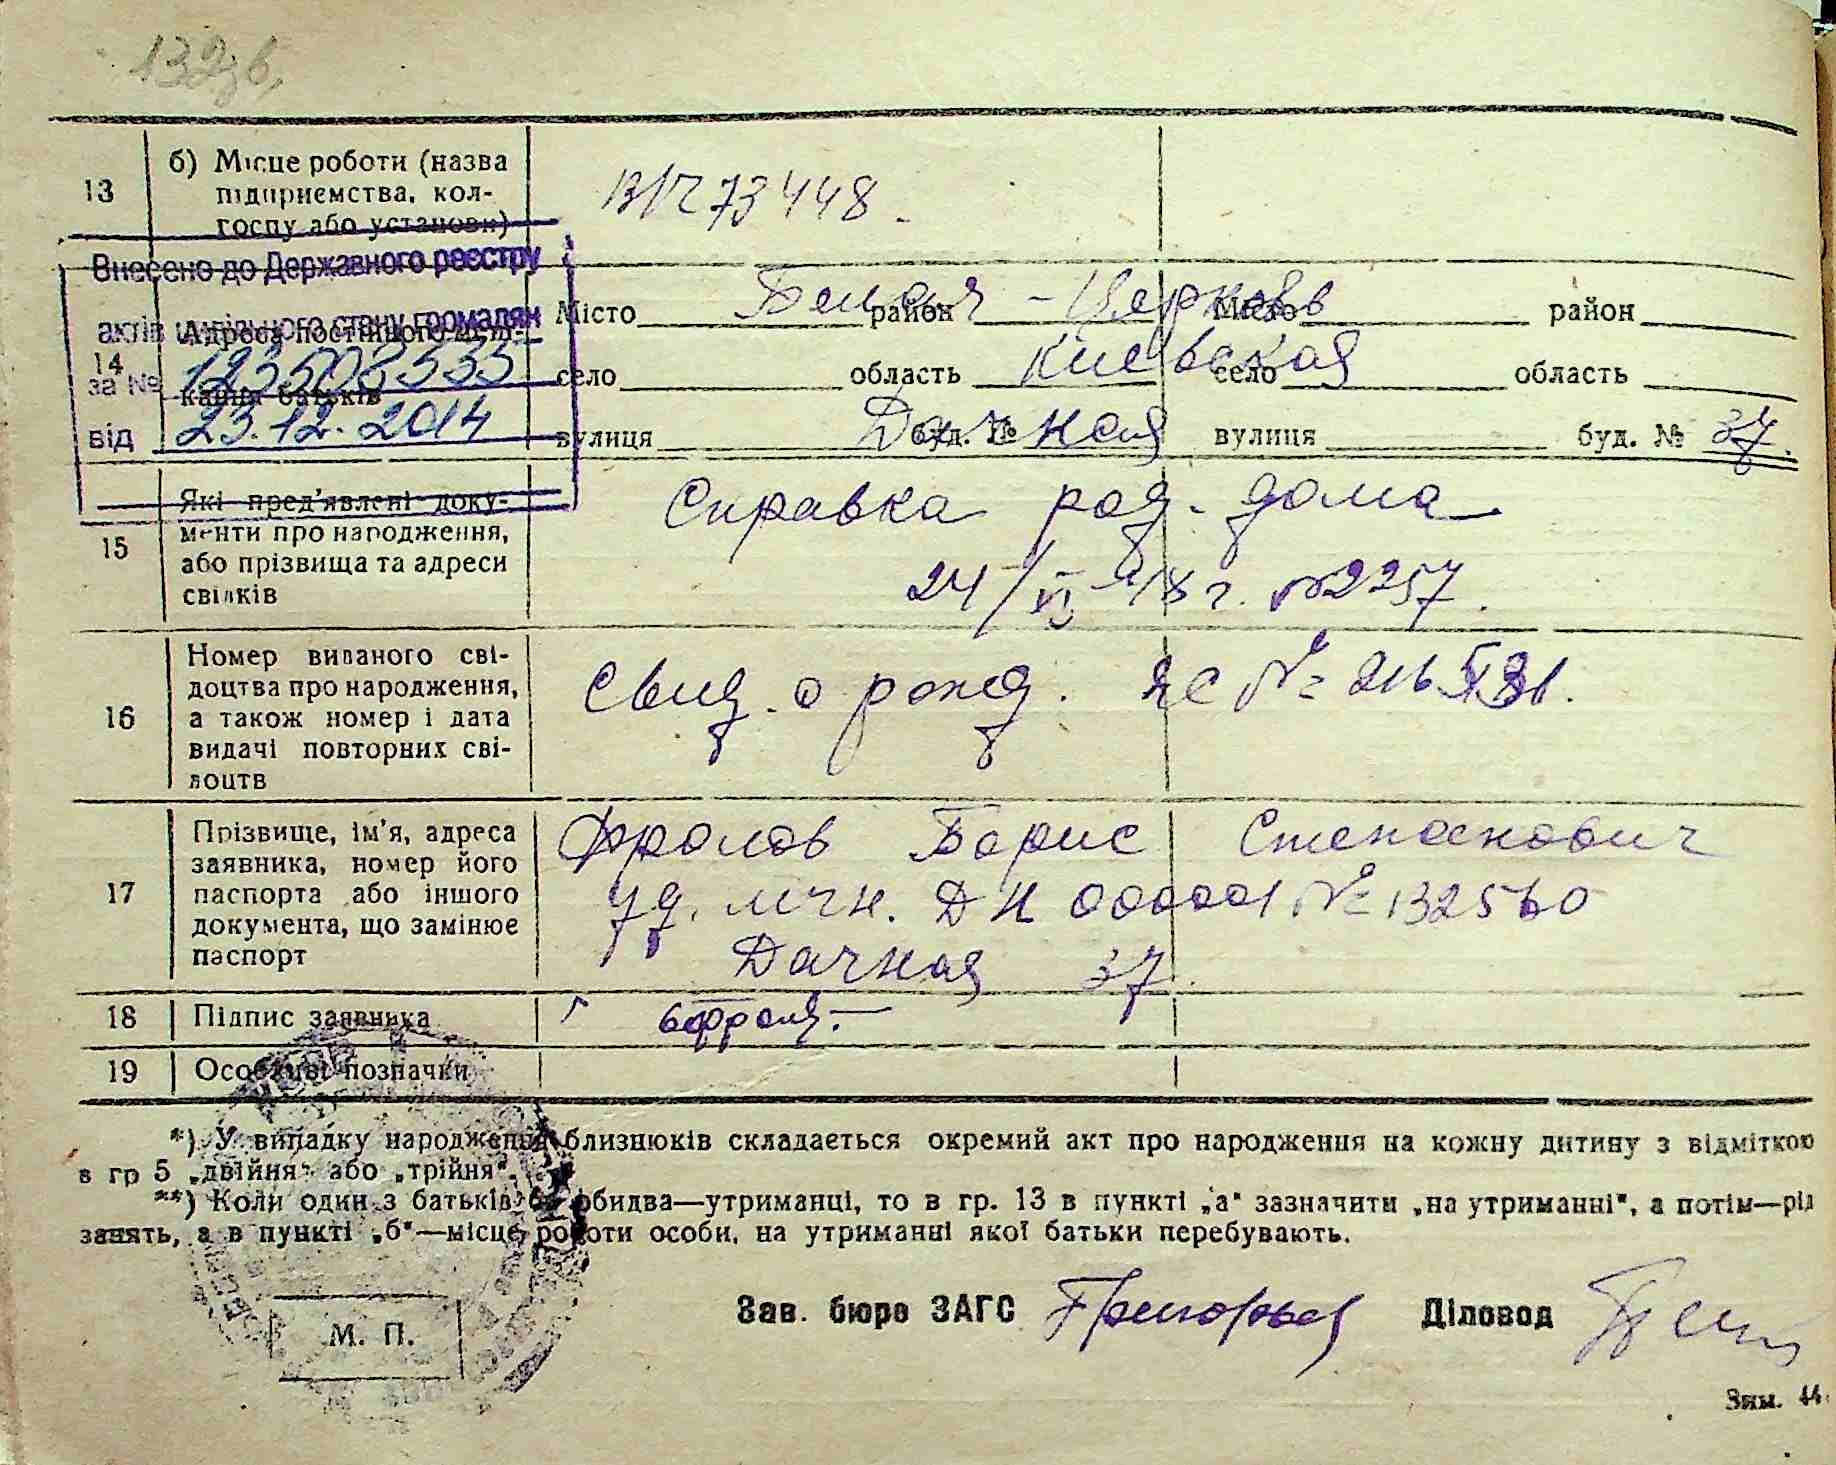 132
13
б) Місце роботи (назва
підприємства, кол-
госпу або установи)
В/Ч 73448.
Внесено до Державного реєстру
актів цивільного стану громадян
за № 123503535
від 23.12.2014
14
Адреса постійного
кання батьків
Місто Белая - Церковь район Місто район
село область Киевская село область
вулиця Дачная буд. № вулиця буд. № 37.
15
Які пред'явлені доку-
менти про народження,
або прізвища та адреси
свідків
Справка род. дома
24/VI 48 г. №2257.
16
Номер виданого сві-
доцтва про народження,
а також номер і дата
видачі повторних сві-
доцтв
Свид. о рожд. ЯС №
17
Прізвище, ім'я, адреса
заявника, номер його
паспорта або іншого
документа, що замінює
паспорт
Фролов Борис Степанович
уд. личн. ДН 000001 № 132560
Дачная 37
18
Підпис заявника
19
Особливі позначки
*) У випадку народження близнюків складається окремий акт про народження на кожну дитину з відміткою
в гр 5 „двійня" або „трійня".
**) Коли один з батьків або обидва—утриманці, то в гр. 13 в пункті „а" зазначити „на утриманні", а потім—рід
занять, а в пункті „б"—місце роботи особи, на утриманні якої батьки перебувають.
Зав. бюро ЗАГС Григорьев Діловод
М. П.
Зам. 44